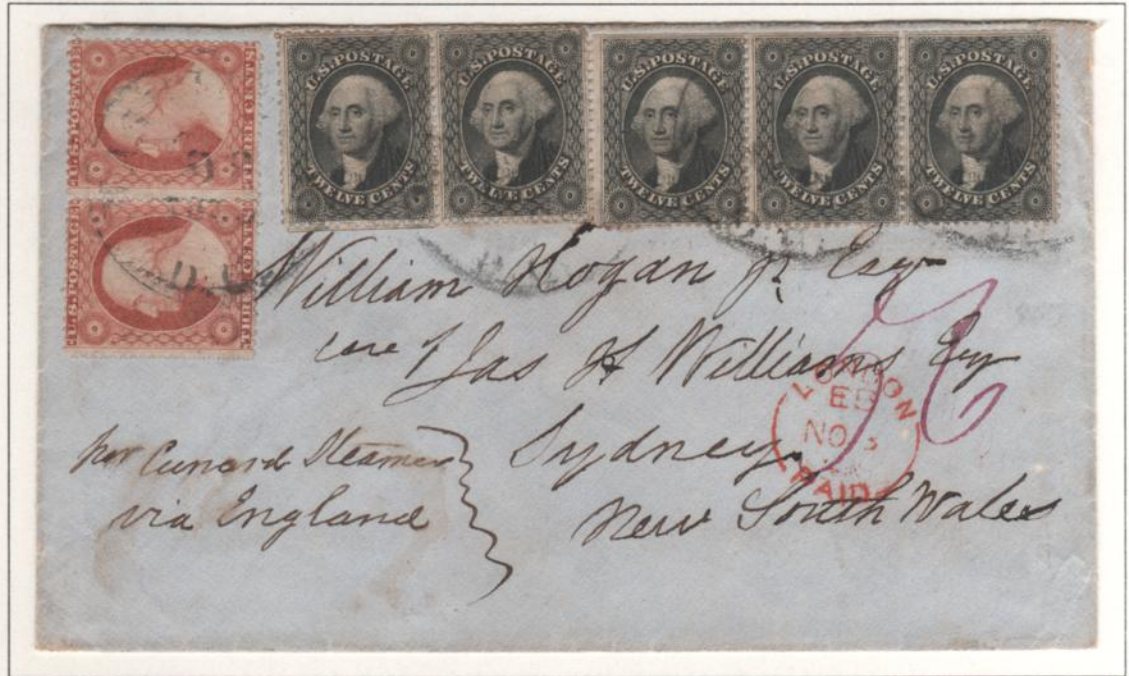 U.S. POSTAGE
THREE CENTS
U.S. POSTAGE
THREE CENTS
U.S. POSTAGE
TWELVE CENTS
U.S. POSTAGE
TWELVE CENTS
U.S. POSTAGE
TWELVE CENTS
U.S. POSTAGE
TWELVE CENTS
U.S. POSTAGE
TWELVE CENTS
D.C.
William Hogan Jr. Esqr
care of Jas H Williams Esq
Sydney
New South Wales
per Cunard Steamer
via England
LONDON
EB
NO 3
PAID